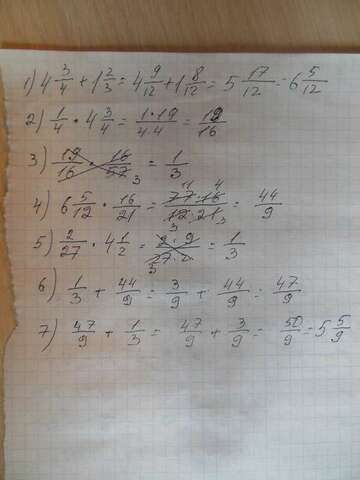 1) 4 3/4 + 1 2/3 = 4 9/12 + 1 8/12 = 5 17/12 = 6 5/12
2) 1/4 · 4 3/4 = 1·19/4·4 = 19/16
3) 19/16 · 16/57 3 = 1/3
4) 6 5/12 · 16/21 = 11 4 77·16/12·21 3 3 = 44/9
5) 2/27 · 4 1/2 = 2·9/27·2 3 = 1/3
6) 1/3 + 44/9 = 3/9 + 44/9 = 47/9
7) 47/9 + 1/3 = 47/9 + 3/9 = 50/9 = 5 5/9